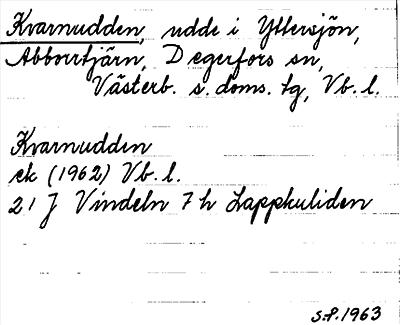 Kvarnudden, udde i Yttersjön,
Abborrtjärn, Degerfors sn,
Västerb. s. doms. tg, Vb. l.
Kvarnudden
ek (1962) Vb. l.
21 J Vindeln 7 h Lappkuliden
S.P. 1963